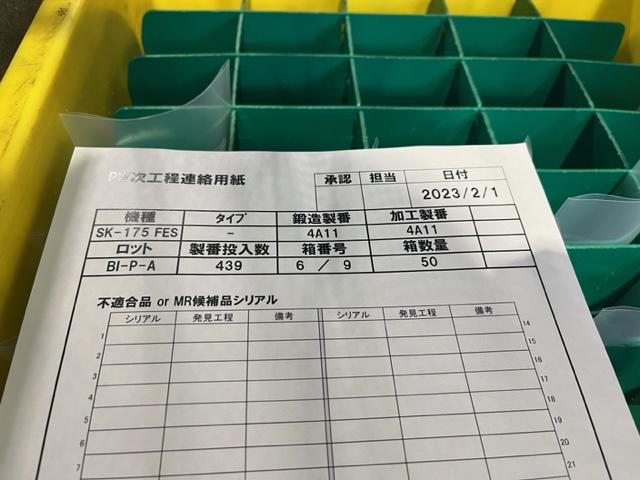 PW次工程連絡用紙
承認 担当 日付
2023/2/1
機種 タイプ 鍛造製番 加工製番
SK-175 FES - 4A11 4A11
ロット 製番投入数 箱番号 箱数量
BI-P-A 439 6 / 9 50
不適合品 or MR候補品シリアル
シリアル 発見工程 備考 シリアル 発見工程 備考
1 14
2 15
3 16
4 17
5 18
6 19
20
7 21